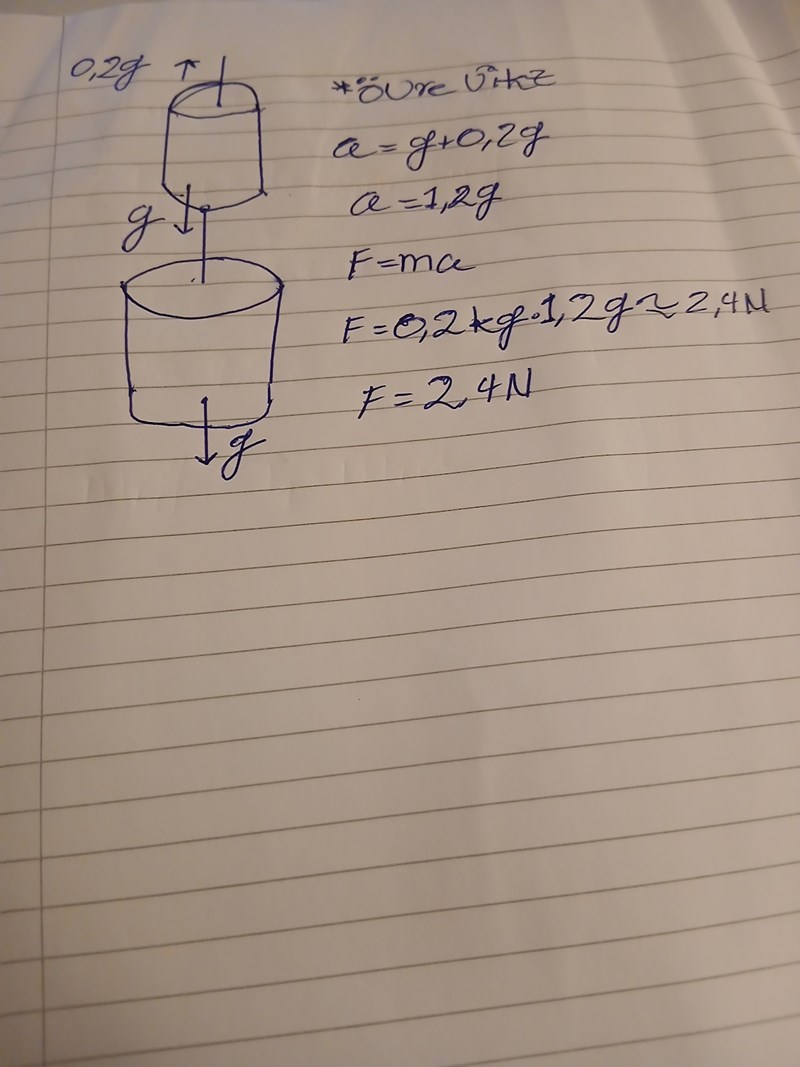 0,2g ↑
*övre vikt
a=g+0,2g
a=1,2g
g
F=ma
F=0,2kg·1,2g≈2,4N
F=2,4N
g